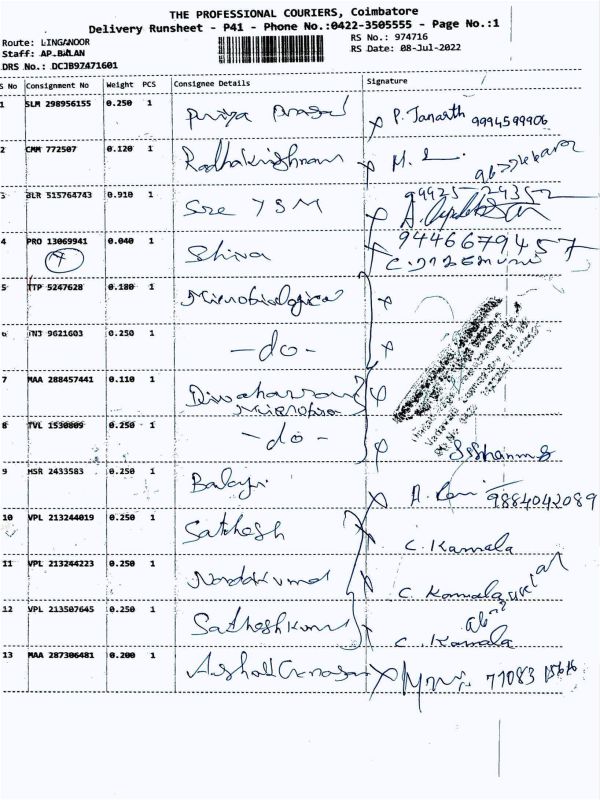 THE PROFESSIONAL COURIERS, Coimbatore
Delivery Runsheet - P41 - Phone No.:0422-3505555 - Page No.:1
Route: LINGANOOR
RS No.: 974716
Staff: AP.BALAN
RS Date: 08-Jul-2022
DRS No.: DCJB97471601
S No Consignment No Weight PCS Consignee Details Signature
1 SLM 298956155 0.250 1 Priya Prasad P. Janarth 9994599906
2 CMM 772507 0.120 1 Radhakrishnan M.
3 BLR 515764743 0.910 1 Sre YSM 99425-29352
4 PRO 13069941 0.040 1 Shiva 9446679457
7
5 TTP 5247628 0.180 1 Microbiological
6 9621603 0.250 1 -do-
7 MAA 288457441 0.110 1 Diwaharran
Microbio
8 TVL 1530809 0.250 1 -do- S. Shanmu
9 MSR 2433583 0.250 1 Balaji A. Rani 9884042089
10 VPL 213244019 0.250 1 Sathesh C. Kamala
11 VPL 213244223 0.250 1 Nandakumar C. Kamala
12 VPL 213507645 0.250 1 Satheshkumar C. Kamala
13 MAA 287306481 0.200 1 77083